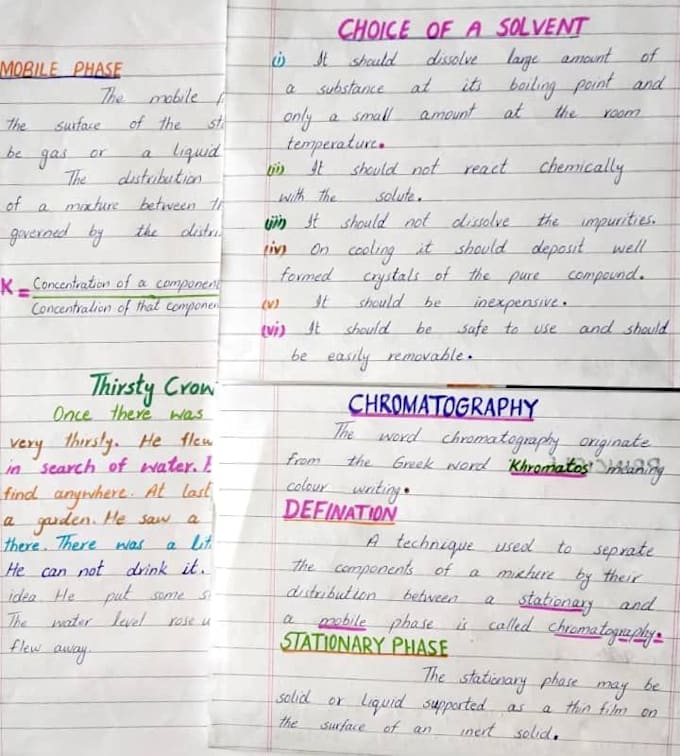 MOBILE PHASE
The mobile
the surface of the
be gas or a liquid
The distribution
of a mixture between
governed by the
K = Concentration of a component
Concentration of that
Thirsty Crow
Once there was
very thirsty. He flew
in search of water.
find anywhere. At last
a garden. He saw a
there. There was a
He can not drink it.
idea He put some
The water level rose
flew away.
CHOICE OF A SOLVENT
(i) It should dissolve large amount of
a substance at its boiling point and
only a small amount at the room
temperature.
(ii) It should not react chemically
with the solute.
(iii) It should not dissolve the impurities.
(iv) On cooling it should deposit well
formed crystals of the pure compound.
(v) It should be inexpensive.
(vi) It should be safe to use and should
be easily removable.
CHROMATOGRAPHY
The word chromatography originate
from the Greek word 'Khromatos' meaning
colour writing.
DEFINATION
A technique used to seprate
the components of a mixture by their
distribution between a stationary and
a mobile phase is called chromatography.
STATIONARY PHASE
The stationary phase may be
solid or liquid supported as a thin film on
the surface of an inert solid.